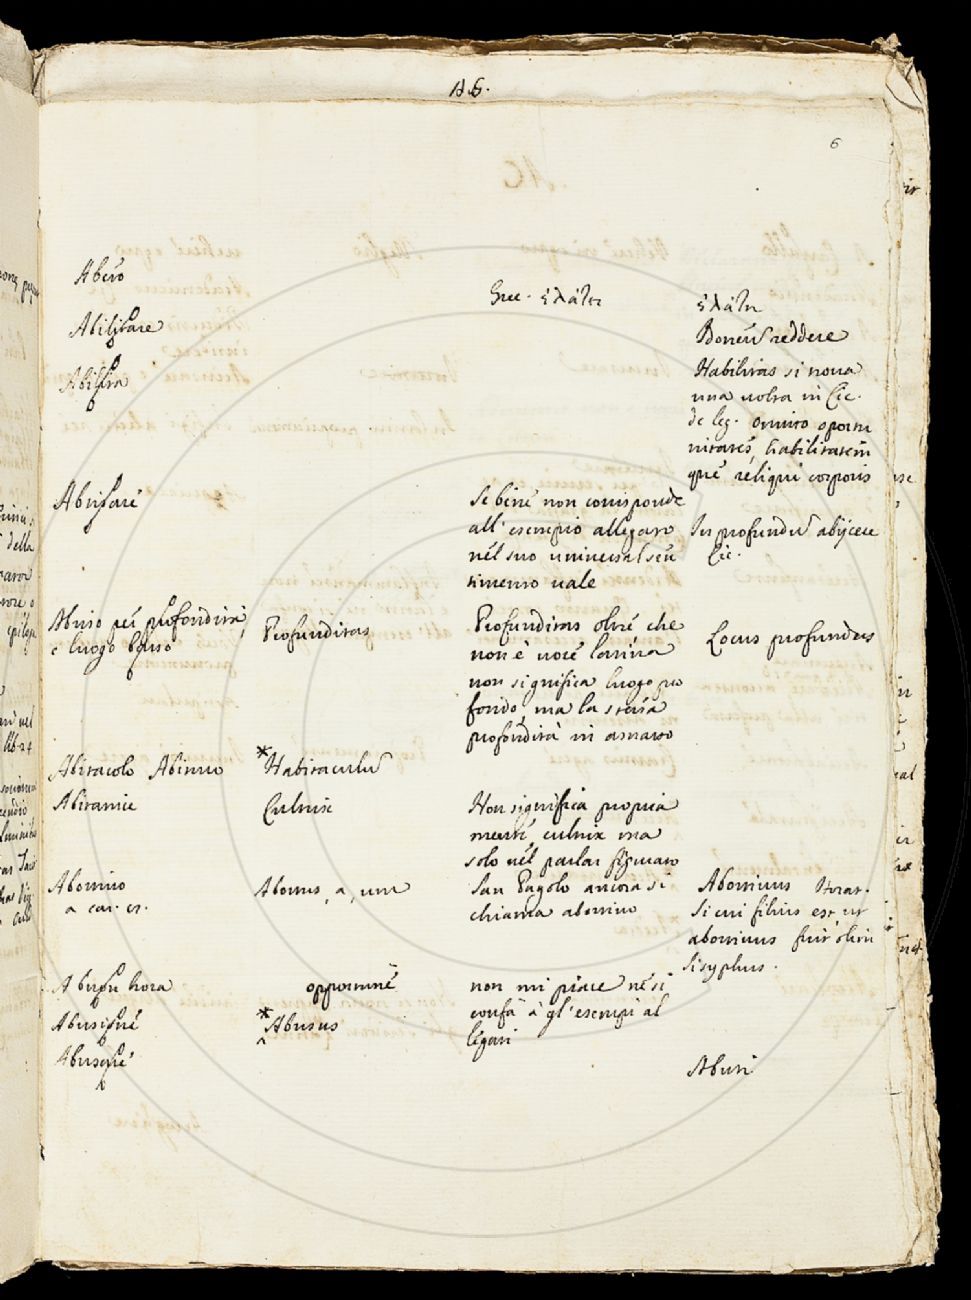 AB.
6
Abeto
Grec. ἐλάτη
ἐλάτη
Abilitare
Bonum reddere
Abilità
Habilitas si trova
una volta in Cic.
de leg. omitto opportu
nitates, habilitatem
que reliqui corporis
Abissare
Se bene non corrisponde
all' esempio allegato
nel suo universal sen
timento vale
In profundum abijcere
Cic.
Abisso per profondità,
e luogo basso
Profunditas
Profunditas oltre che
non è voce latina
non significa luogo pro
fondo, ma la stessa
profondità in astratto
Locus profundus
Abitacolo Abituro
*Habitaculum
Abitatrice
Cultrix
Non significa propria
mente, cultrix ma
solo nel parlar figurato
Abortivo
a car. 15.
Abortus, a, um
San Pagolo ancora si
chiama abortivo
Abortivus Horat.
Si cui filius est, ut
abortivus fuit olim
Sisyphus.
A buon hora
opportune
non mi piace ne si
confà à gl' esempi al
legati
*Abusus
Abuti